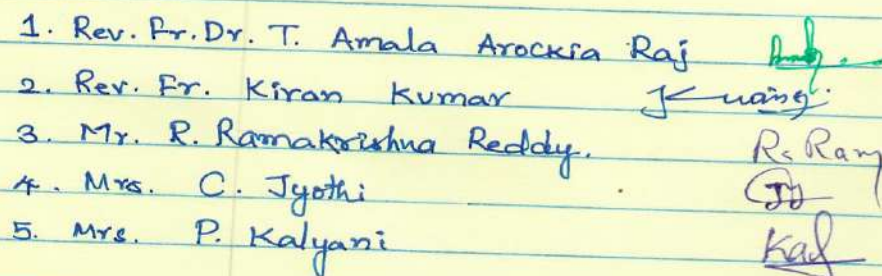 1. Rev. Fr. Dr. T. Amala Arockia Raj
2. Rev. Fr. Kiran Kumar
3. Mr. R. Ramakrishna Reddy. R. Ram
4. Mrs. C. Jyothi
5. Mrs. P. Kalyani Kal